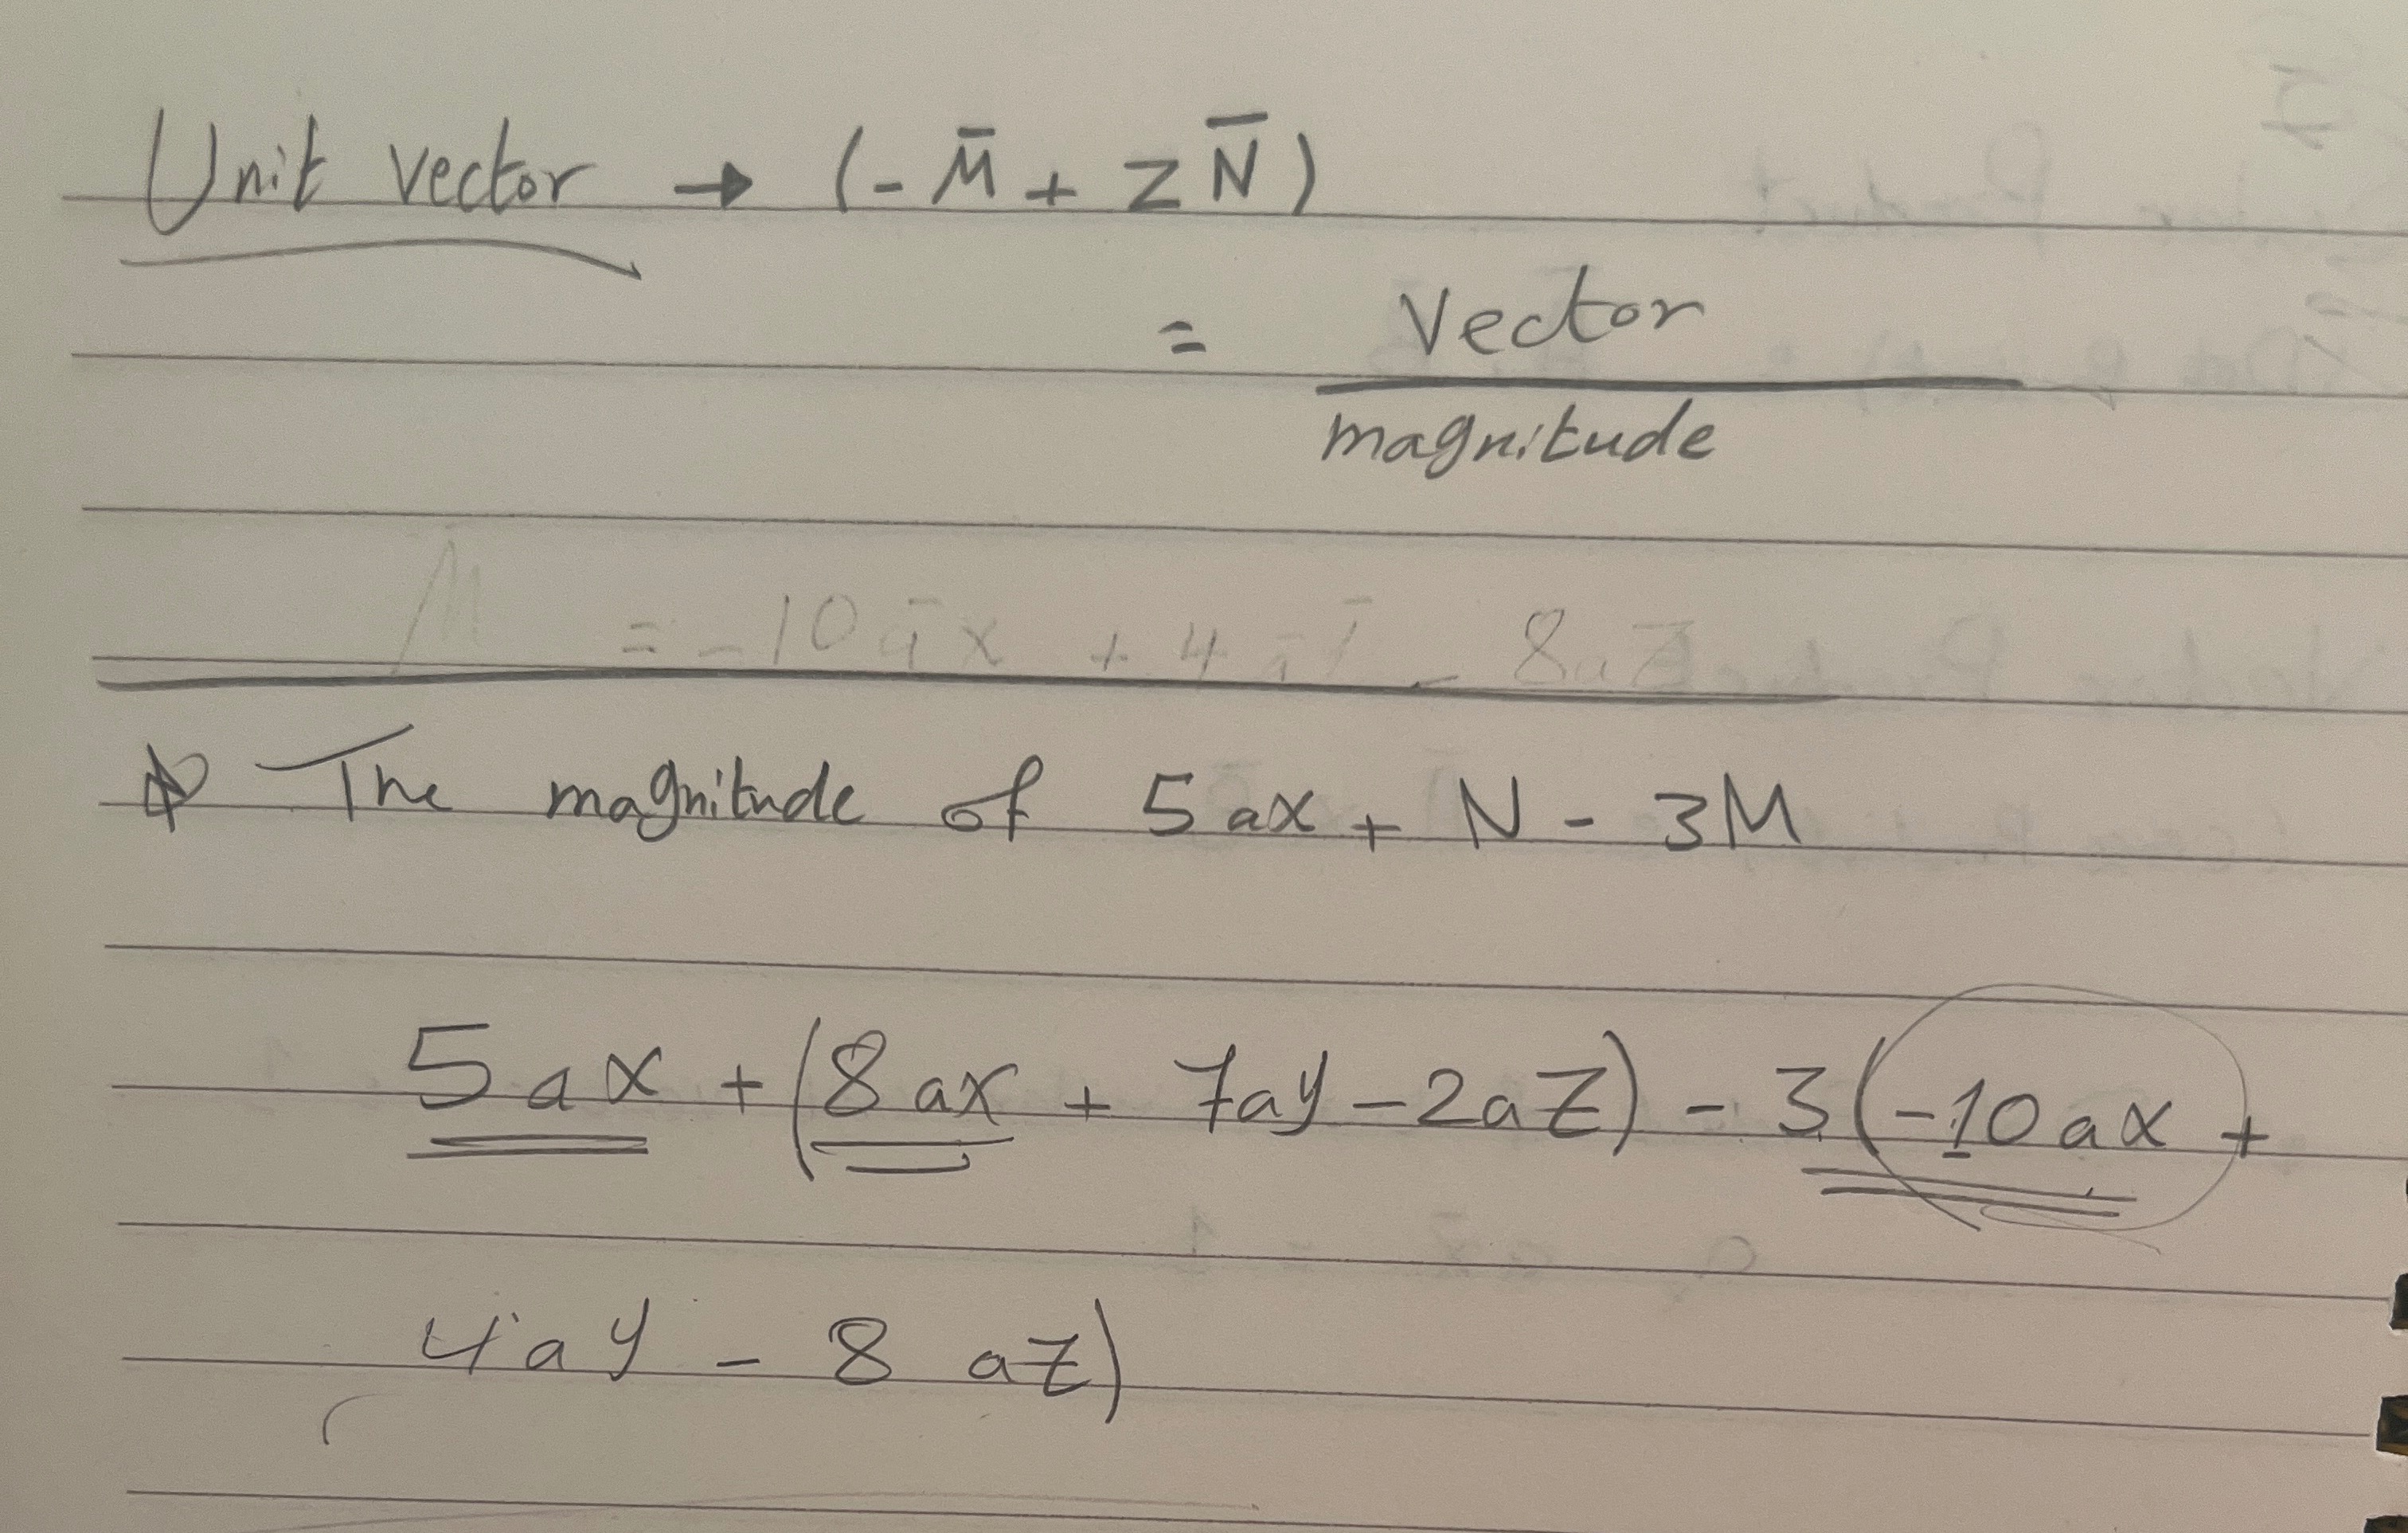 Unit vector → (- M̄ + 2 N̄)
= Vector
magnitude
M = -10 āx + 4 āy - 8 az
The magnitude of 5 ax + N - 3M
5 ax + (8 ax + 7ay - 2az) - 3(-10 ax +
4 ay - 8 az)